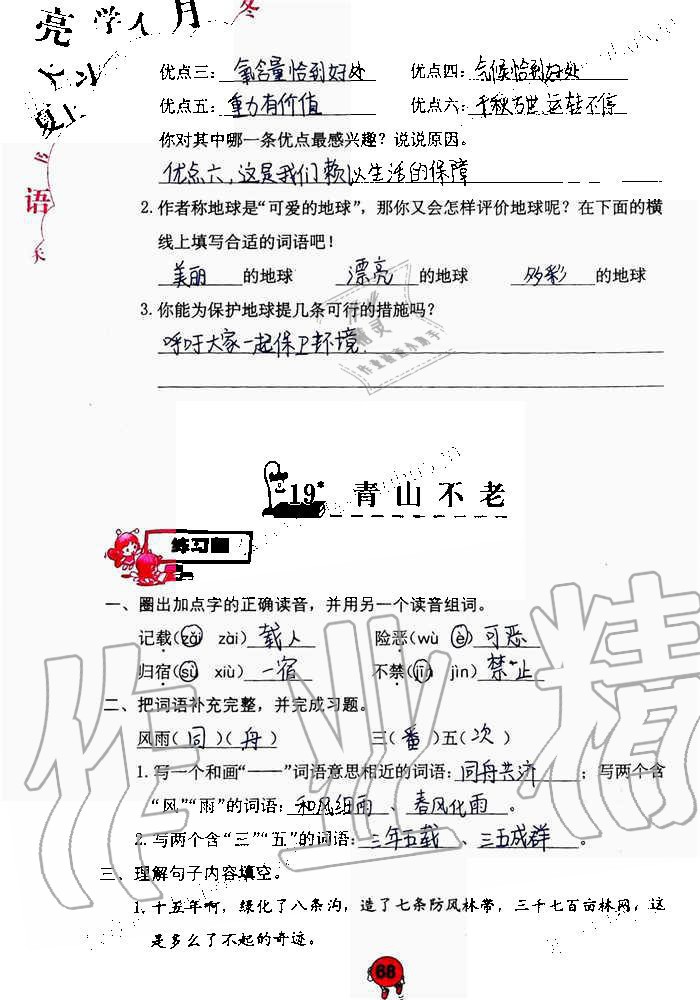 亮 学 人 月 冬
夏 上 习
语 书 天
优点三：氧含量恰到好处 优点四：气候恰到好处
优点五：重力有价值 优点六：千秋万世,运转不停
你对其中哪一条优点最感兴趣？说说原因。
优点六,这是我们赖以生活的保障
2. 作者称地球是“可爱的地球”，那你又会怎样评价地球呢？在下面的横
线上填写合适的词语吧！
美丽 的地球 漂亮 的地球 多彩 的地球
3. 你能为保护地球提几条可行的措施吗？
呼吁大家一起保卫环境.
19* 青山不老
练习
一、圈出加点字的正确读音，并用另一个读音组词。
记载(zǎi zài) 载人 险恶(wù è) 可恶
归宿(sù xiù) 一宿 不禁(jīn jìn) 禁止
二、把词语补充完整，并完成习题。
风雨(同)(舟) 三(番)五(次)
1. 写一个和画“——”词语意思相近的词语：同舟共济；写两个含
“风”“雨”的词语：和风细雨、春风化雨。
2. 写两个含“三”“五”的词语：三年五载、三五成群。
三、理解句子内容填空。
1. 十五年啊，绿化了八条沟，造了七条防风林带，三千七百亩林网，这
是多么了不起的奇迹。
68
作业精